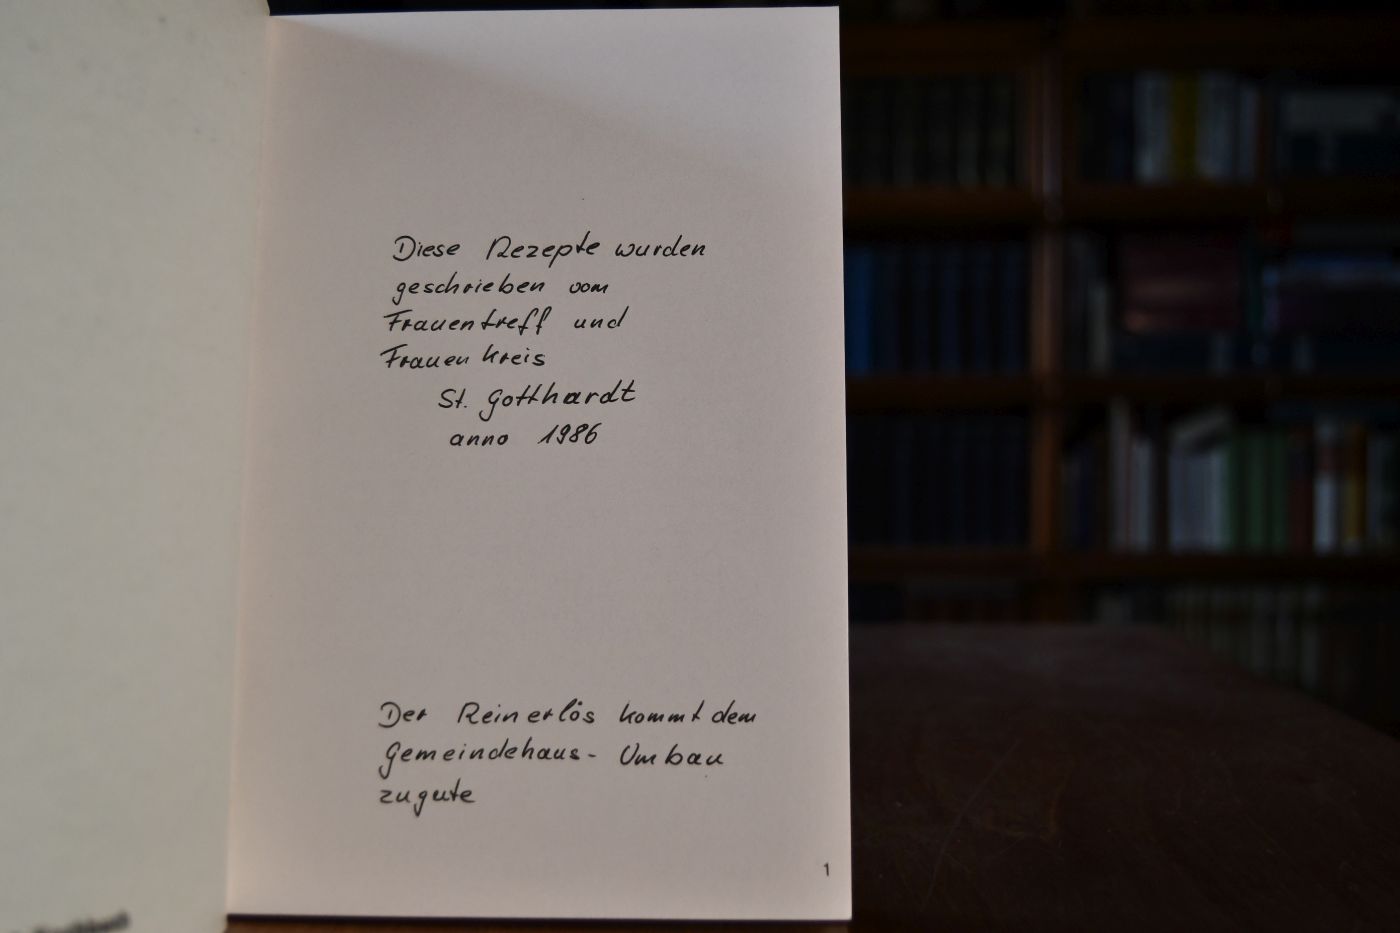 Diese Rezepte wurden
geschrieben vom
Frauentreff und
Frauenkreis
St. Gotthardt
anno 1986
Der Reinerlös kommt dem
Gemeindehaus-Umbau
zugute
1